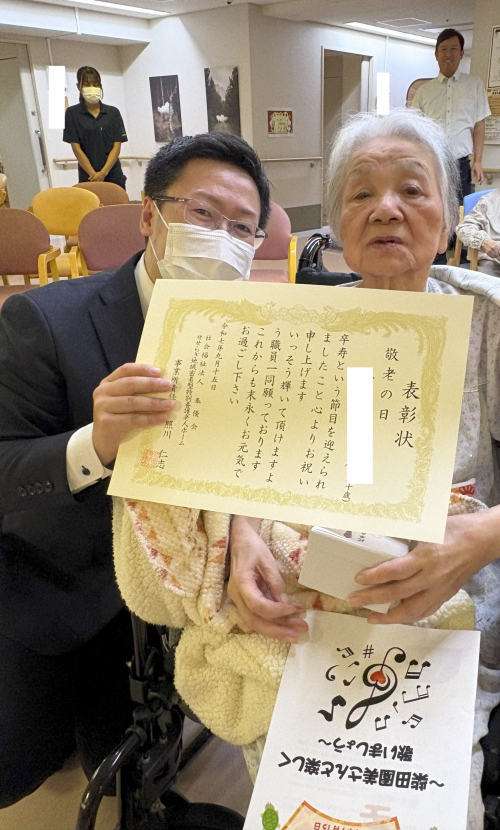 表彰状
敬老の日
十歳)
卒寿という節目を迎えられ
ましたこと心よりお祝い
申し上げます
いっそう輝いて頂けますよ
う職員一同願っております
これからも末永くお元気で
お過ごし下さい
令和七年九月十五日
社会福祉法人 奉優会
事業所
照川 仁志
#
~柴田園美さんと楽しく
歌いましょう~